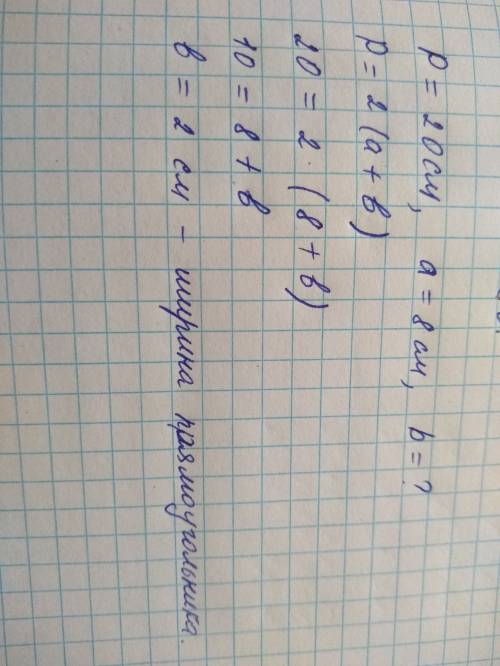 P = 20 см, a = 8 см, b = ?
P = 2(a + в)
20 = 2 · (8 + в)
10 = 8 + в
в = 2 см - ширина прямоугольника.